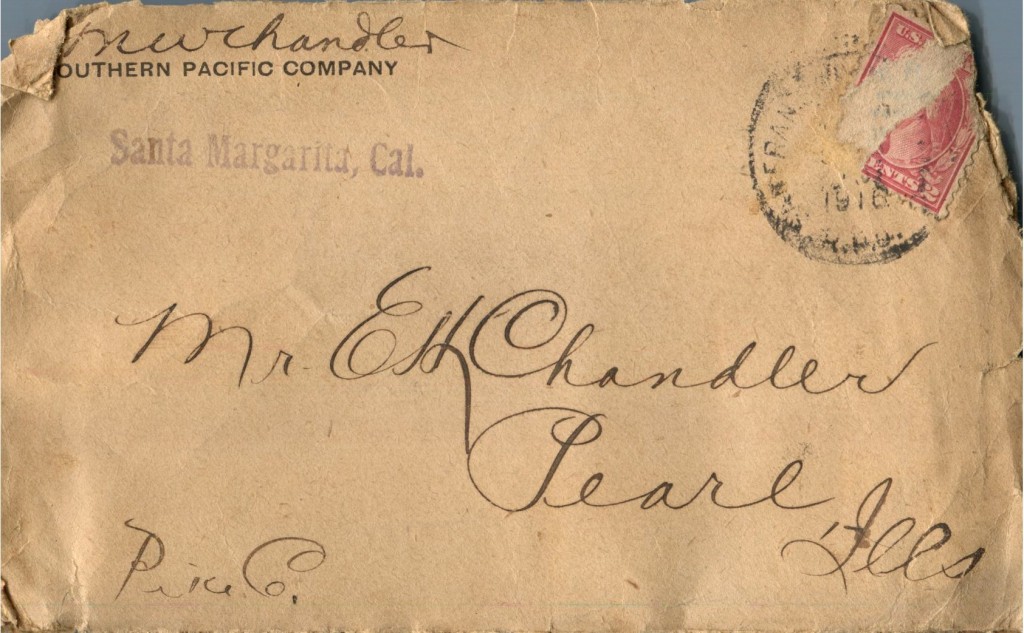 W Chandler
OUTHERN PACIFIC COMPANY
Santa Margarita, Cal.
U.S.
FRAN
1918
R.P.O.
CENTS 2
Mr. EH Chandler
Pearl
Ills
Pike Co.